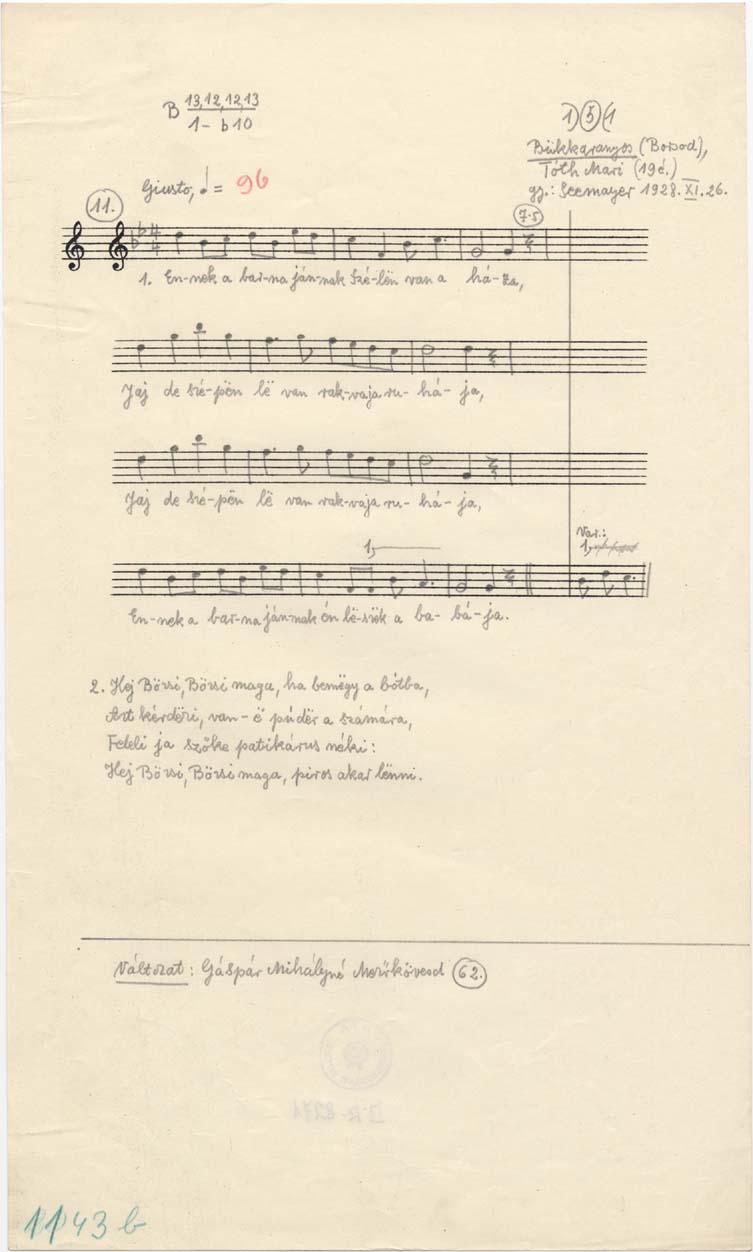 B 13,12,12,13
1 – b10
1) 5 (1
Bükkaranyos (Borsod),
Tóth Mari (19é.)
gy.: Seemayer 1928. XI. 26.
Giusto, ♩ = 96
11.
7-5
4
4
1. En-nek a bar-na ján-nak Szé-lën van a há-za,
Jaj de szé-pën lë van rak-vaja ru-há-ja,
Jaj de szé-pën lë van rak-vaja ru-há-ja,
1,
Var.:
1,
En-nek a bar-na ján-nak én lë-szëk a ba-bá-ja.
2. Hej Börsi, Börsi maga, ha bemëgy a bótba,
Azt kérdëzi, van-ë púdër a számára,
Feleli ja szőke patikárus néki:
Hej Börsi, Börsi maga, piros akar lënni.
Változat: Gáspár Mihályné Mezőkövesd 62.
1143 b